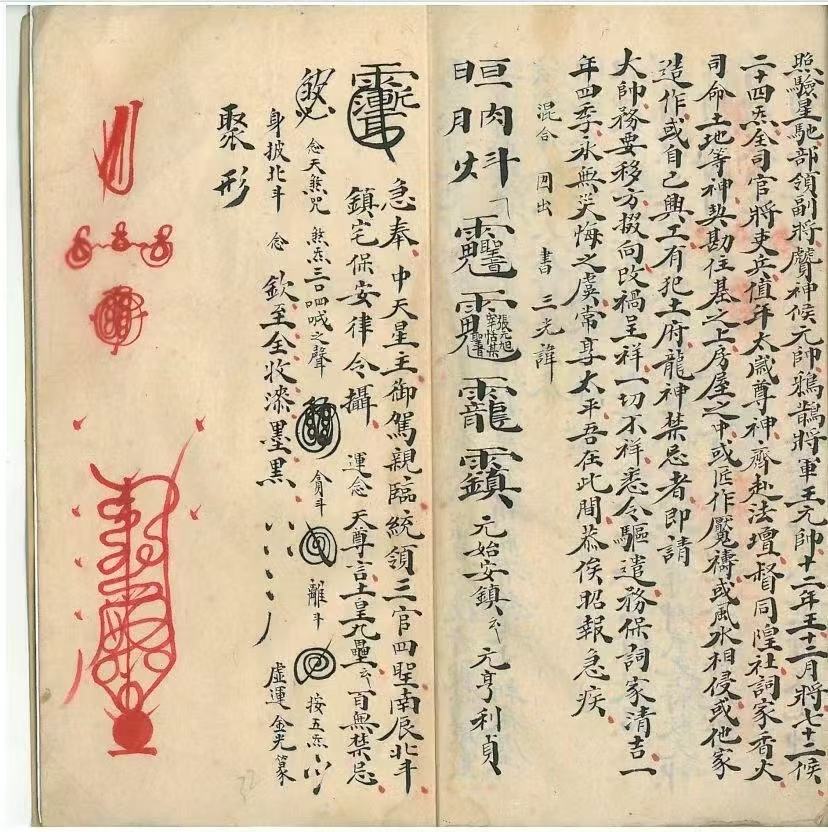 照驗星馳部領副將聲神候元帥鴉鵲將軍王元帥十二年王十二月將七十二候
二十四炁全司官將吏兵值年太歲尊神齊赴法壇督同隍社詞家香火
司命土地等神契勘住基之上房屋之中或匠作魘禱或風水相侵或他家
造作或自己興工有犯土府龍神禁忌者即請
大帥務要移方掇向改禍呈祥一切不祥悉令驅遣務保詞家清吉一
年四季永無災悔之虞常尊太平吾在此間恭俟昭報急疾
混合 四出 書 三光諱
元始安鎮 元亨利貞
急奉 中天星主御駕親臨統領三官四聖南辰北斗
鎮宅保安律令攝 運念 天尊言土皇九壘 百無禁忌
念天煞咒 煞炁三口四喊之聲 貪斗 離斗 按五炁
身披北斗 念 欽至全收漆墨黑 虛運金光篆
聚形